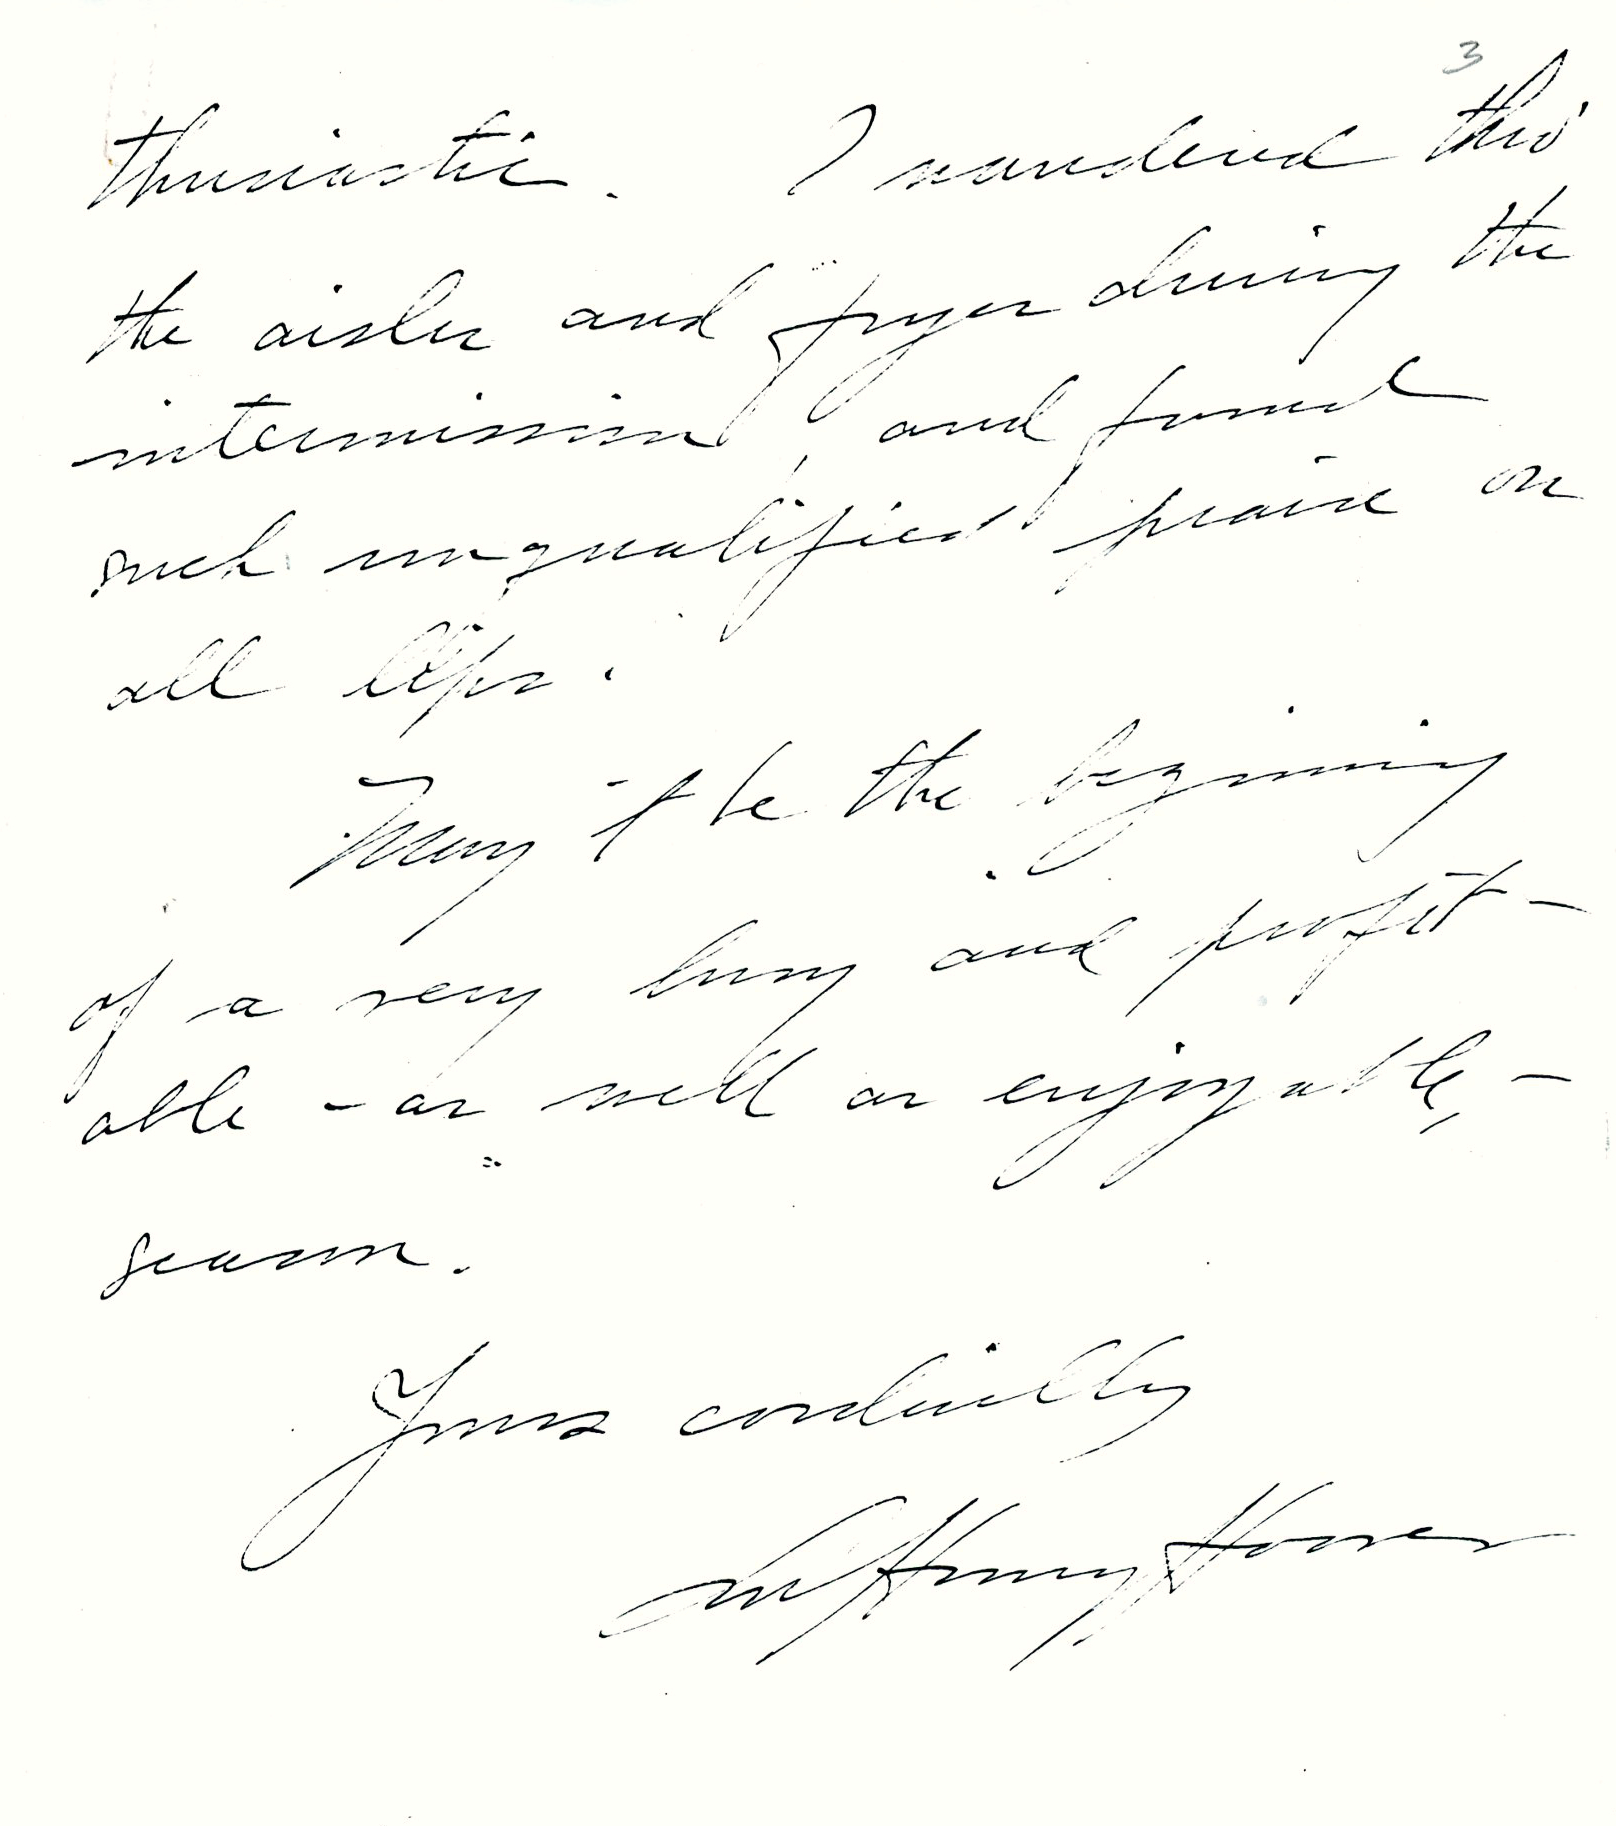 3
thusiastic. I wandered thro'
the aisles and foyer during the
intermission, and found
such unqualified praise on
all lips.
May it be the beginning
of a very busy and profit-
able - as well as enjoyable, -
season.
Yours cordially
Lou Henry Hoover